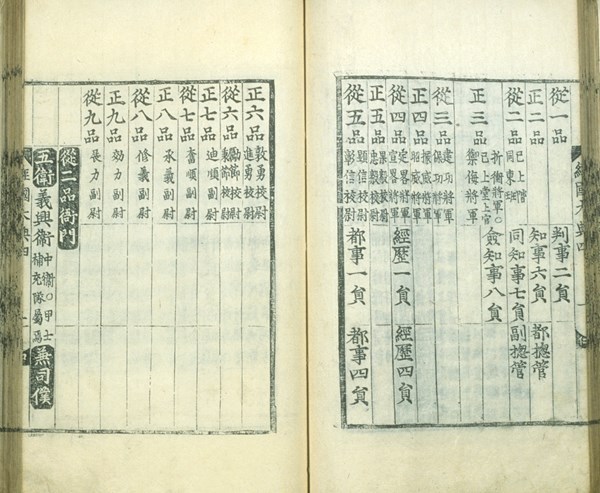 經國大典四
從一品 判事二貟
正二品 知事六貟 都摠管
從二品 已上階同東班 同知事七貟 副摠管
正三品 折衝將軍○已上堂上官禦侮將軍 僉知事八貟
從三品 建功將軍保功將軍
正四品 振威將軍昭威將軍
從四品 定畧將軍宣畧將軍 經歷一貟 經歷四貟
正五品 果毅校尉忠毅校尉
從五品 顯信校尉彰信校尉 都事一貟 都事四貟
正六品 敦勇校尉進勇校尉
從六品 勵節校尉秉節校尉
正七品 迪順副尉
從七品 奮順副尉
正八品 承義副尉
從八品 修義副尉
正九品 効力副尉
從九品 展力副尉
從二品衙門
五衛 義興衛 中衛○甲士補充隊屬焉 兼司僕
經國大典四